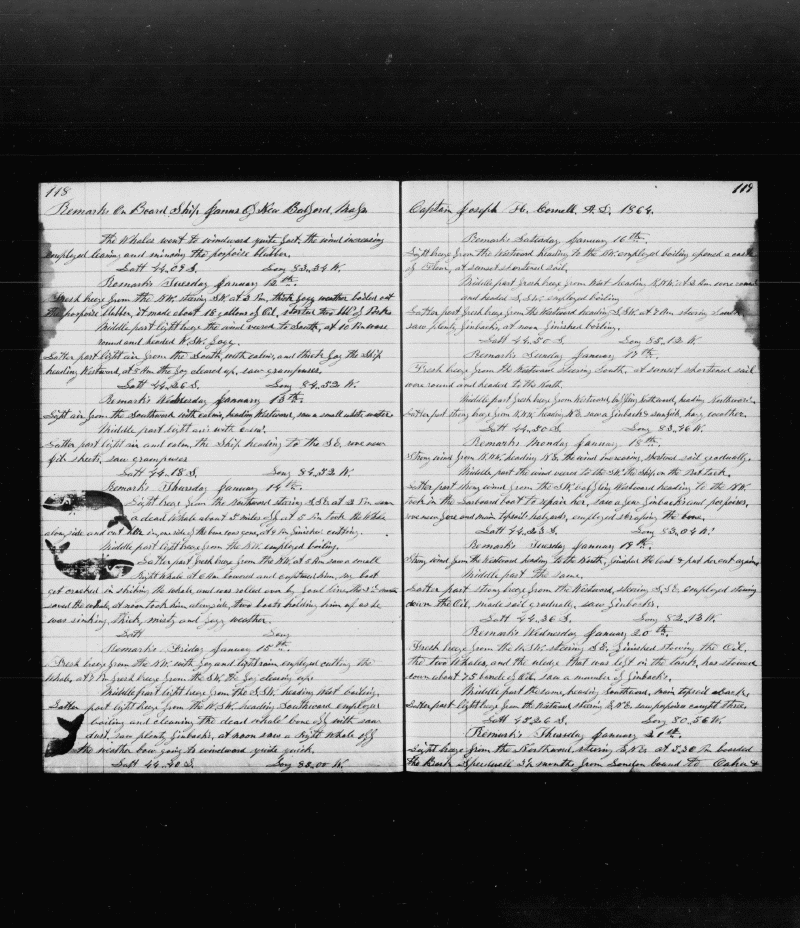 118
Remarks On Board Ship Janus Of New Bedford, Mass
the Whales went to windward quite fast, the wind increasing
employed leaning and mincing the porpoise blubber.
Latt 44.08 S. Long 83.34 W.
Remarks Tuesday January 12th.
Fresh breeze from the NW. steering SW. at 2 Pm, thick fogy weather boiled out
the porpoise blubber, it made about 18 gallons of Oil,
Middle part light breeze the wind veered to South, at 10 Pm wore
round and headed W.S.W. fogy.
Latter part light air from the South, with calms, and thick fog the Ship
heading Westward, at 8 Am the fog cleared up, saw grampuses.
Latt 44.26 S. Long 84.52 W.
Remarks Wednesday January 13th.
Light air from the Southward with calms, heading Westward, saw a small white water
Middle part light airs with calms.
Latter part light air and calm, the Ship heading to the SE, wove new
jib sheets, saw grampuses
Latt 44.18 S. Long 84.52 W.
Remarks Thursday January 14th.
Light breeze from the Northward steering S.S.E. at 3 Pm saw
a dead Whale about 2 miles off at 5 Pm took the Whale
along side and cut him in, one side of the bone was gone, at 9 Pm finished cutting.
Middle part light breeze from the NW. employed boiling.
Latter part fresh breeze from the NW. at 5 Am saw a small
Right Whale at 6 Am lowered and captured him, boat
got crushed in striking the whale, and was rolled over by foul line, the 3rd
saved the whale, at noon took him along side, two boats holding him up as he
was sinking, thick, misty and fogy weather.
Latt Long
Remarks Friday January 15th.
Fresh breeze from the NW. with fog and light rain employed cutting the
Whale, at 7 Pm fresh breeze from the SW. the fog clearing up.
Middle part light breeze from the S.S.W. heading West boiling.
Latter part light breeze from the W.S.W. heading Southward employed
boiling and cleaning the dead whale bone off with saw
dust, saw plenty finbacks, at noon saw a Right Whale off
the weather bow going to windward quite quick.
Latt 44.40 S. Long 85.00 W.
119
Captain Joseph H. Cornell, A.D. 1864.
Remarks Saturday January 16th.
Light breeze from the Westward heading to the NW. employed boiling opened a cask
of Flour, at sunset shortened sail.
Middle part fresh breeze from West heading N.NW. at 2 Am wore round
and headed S.SW employed boiling
Latter part fresh breeze from the Westward heading S.SW. at 7 Am steering South,
saw plenty finbacks, at noon finished boiling.
Latt 44.50 S. Long 85.12 W.
Remarks Sunday January 17th.
Fresh breeze from the Westward steering South, at sunset shortened sail
wore round and headed to the North.
Middle part fresh breeze from Westward, heading Northward.
Latter part strong breeze from N.NW. heading NE. saw a finback & sunfish, hazy weather.
Latt 44.30 S. Long 83.46 W.
Remarks Monday January 18th.
Strong wind from N.NW. heading N.E. the wind increasing, shortened sail gradually.
Middle part the wind veered to the SW. the Ship on the Port tack.
Latter part strong wind from the SW. hauling Westward heading to the NW.
took in the Larboard boat to repair her, saw a few finbacks and porpoises,
wove new fore and main topsail halyards, employed scraping the bone.
Latt 44.23 S. Long 83.04 W.
Remarks Tuesday January 19th.
Strong wind from the Westward heading to the North, finished the boat & put her out again.
Middle part the same.
Latter part strong breeze from the Westward, steering S.SE. employed stowing
down the Oil, made sail gradually, saw finbacks.
Latt 44.36 S. Long 82.13 W.
Remarks Wednesday January 20th.
Fresh breeze from the W.SW. steering SE. finished stowing the Oil,
the two Whales, and the sledge that was left in the tank, has stowed
down about 75 barrels of Oil, saw a number of finbacks.
Middle part the same, heading Southward, main topsail aback.
Latter part light breeze from the Westward steering E.NE. saw porpoises caught three.
Latt 45.26 S. Long 80.56 W.
Remarks Thursday January 21th.
Light breeze from the Northward, steering E.NE. at 3.30 Pm boarded
the Bark Speedwell 3½ months from London bound to &